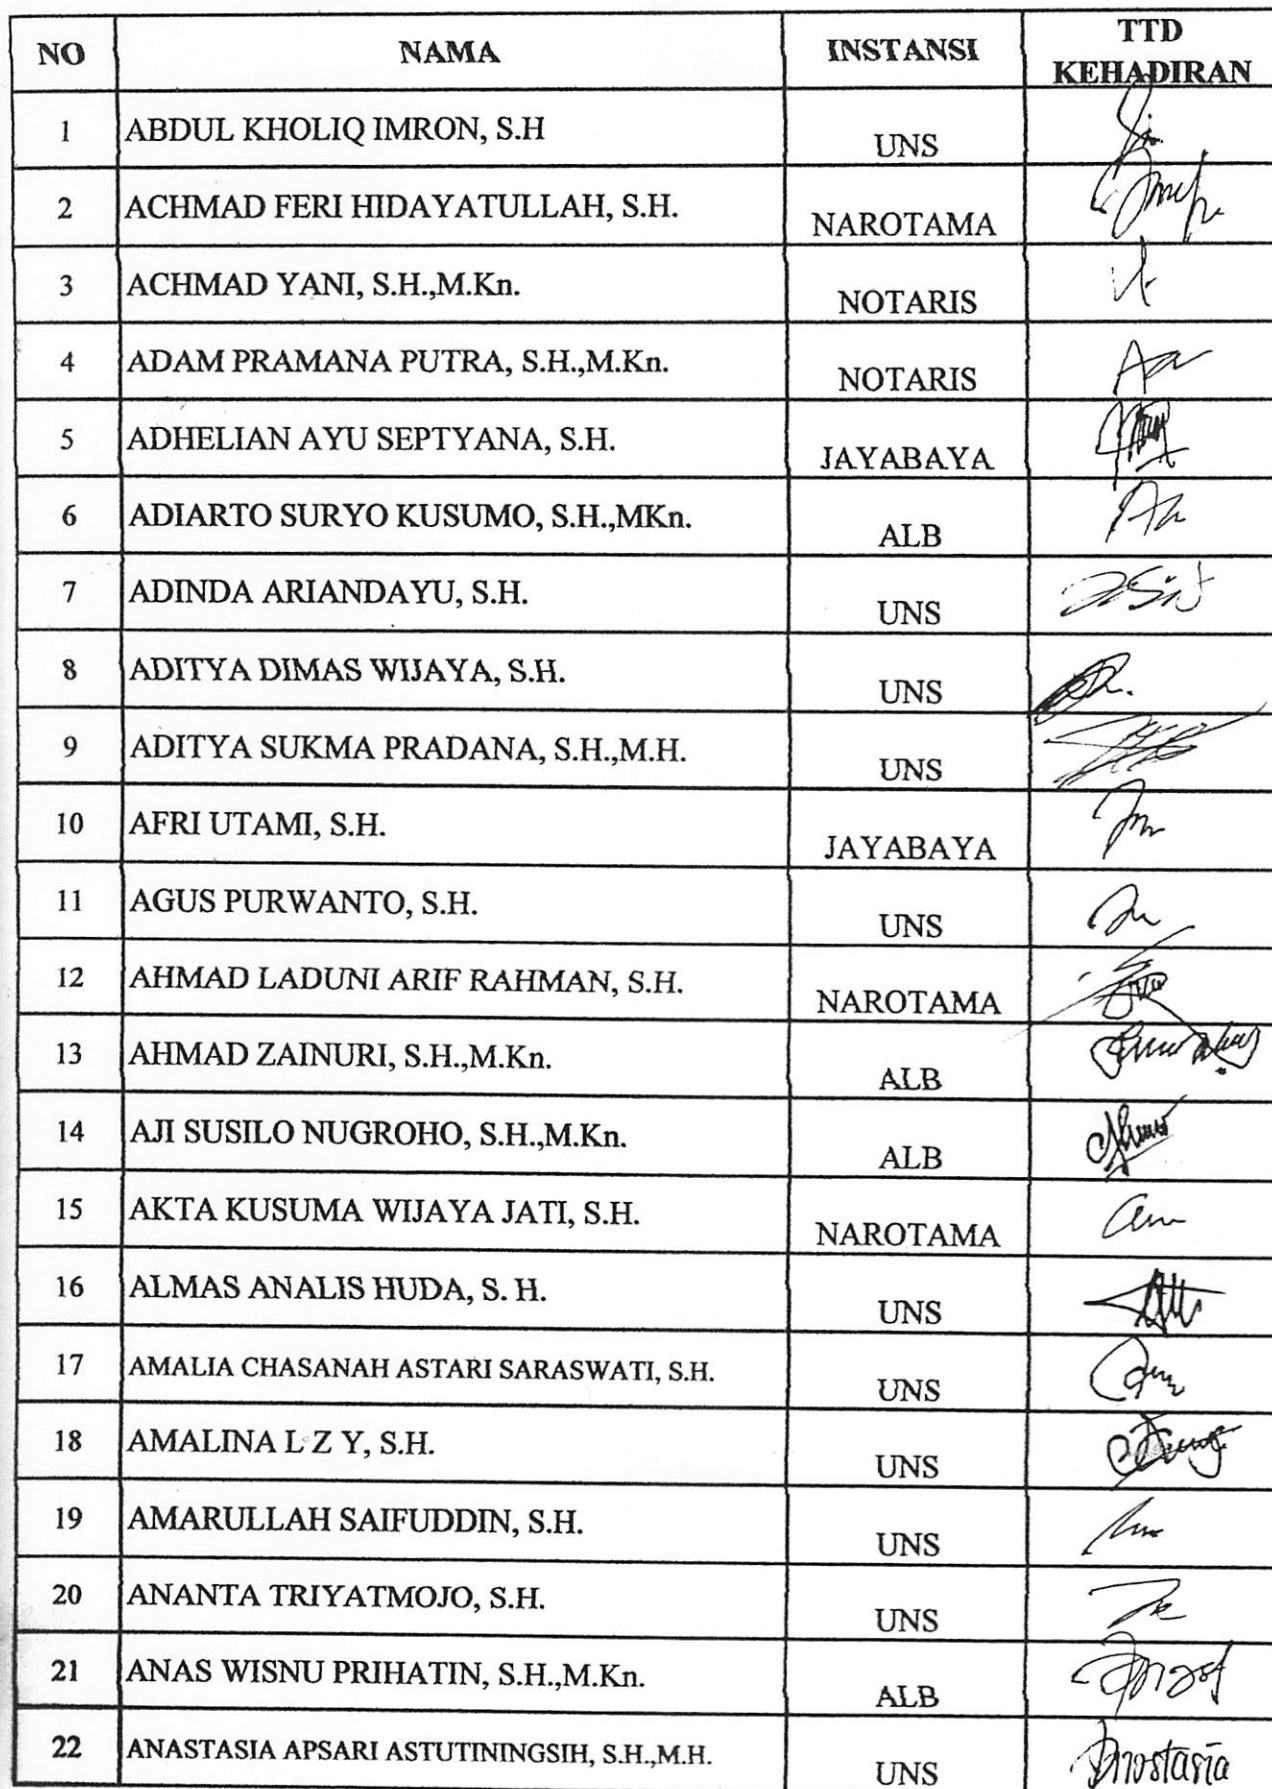 NO NAMA INSTANSI TTD KEHADIRAN
1 ABDUL KHOLIQ IMRON, S.H UNS
2 ACHMAD FERI HIDAYATULLAH, S.H. NAROTAMA
3 ACHMAD YANI, S.H.,M.Kn. NOTARIS
4 ADAM PRAMANA PUTRA, S.H.,M.Kn. NOTARIS
5 ADHELIAN AYU SEPTYANA, S.H. JAYABAYA
6 ADIARTO SURYO KUSUMO, S.H.,MKn. ALB
7 ADINDA ARIANDAYU, S.H. UNS
8 ADITYA DIMAS WIJAYA, S.H. UNS
9 ADITYA SUKMA PRADANA, S.H.,M.H. UNS
10 AFRI UTAMI, S.H. JAYABAYA
11 AGUS PURWANTO, S.H. UNS
12 AHMAD LADUNI ARIF RAHMAN, S.H. NAROTAMA
13 AHMAD ZAINURI, S.H.,M.Kn. ALB
14 AJI SUSILO NUGROHO, S.H.,M.Kn. ALB
15 AKTA KUSUMA WIJAYA JATI, S.H. NAROTAMA
16 ALMAS ANALIS HUDA, S. H. UNS
17 AMALIA CHASANAH ASTARI SARASWATI, S.H. UNS
18 AMALINA L Z Y, S.H. UNS
19 AMARULLAH SAIFUDDIN, S.H. UNS
20 ANANTA TRIYATMOJO, S.H. UNS
21 ANAS WISNU PRIHATIN, S.H.,M.Kn. ALB
22 ANASTASIA APSARI ASTUTININGSIH, S.H.,M.H. UNS Anastasia